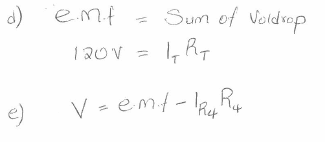 d) e.m.f = Sum of Voldrop
120V = I_T R_T
e) V = e.m.f - I_R4 R_4